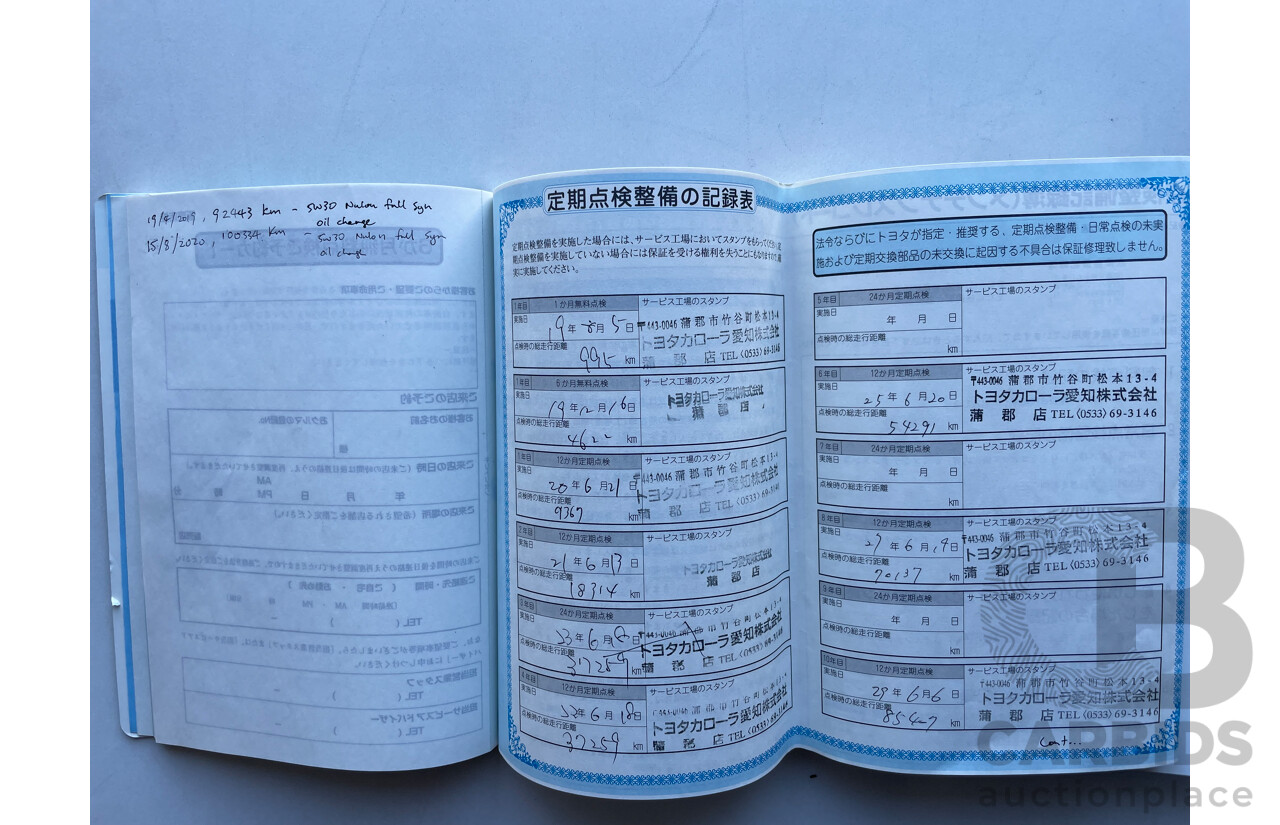 19/4/2019, 92443 km - 5W30 Nulon full syn
oil change
15/8/2020, 100334 km - 5w30 Nulon full syn
oil change
定期点検整備の記録表
定期点検整備を実施した場合には、サービス工場においてスタンプをもらってください。定
期点検整備を実施していない場合には保証を受ける権利を失うことにもなりますので、確
実に実施してください。
1年目 1か月無料点検 サービス工場のスタンプ
実施日 19年8月5日
〒443-0046 蒲郡市竹谷町松本13-4
トヨタカローラ愛知株式会社
蒲郡店 TEL (0533) 69-3146
点検時の総走行距離
km
1年目 6か月無料点検 サービス工場のスタンプ
実施日 19年12月16日
トヨタカローラ愛知株式会社
蒲郡店
点検時の総走行距離
4622 km
1年目 12か月定期点検 サービス工場のスタンプ
実施日 20年6月21日
〒443-0046 蒲郡市竹谷町松本13-4
トヨタカローラ愛知株式会社
蒲郡店 TEL (0533) 69-3146
点検時の総走行距離
9367 km
2年目 12か月定期点検 サービス工場のスタンプ
実施日 21年6月13日
トヨタカローラ愛知株式会社
蒲郡店
点検時の総走行距離
18314 km
3年目 24か月定期点検 サービス工場のスタンプ
実施日 23年6月18日
〒443-0046 蒲郡市竹谷町松本13-4
トヨタカローラ愛知株式会社
蒲郡店 TEL (0533) 69-3146
点検時の総走行距離
37259 km
4年目 12か月定期点検 サービス工場のスタンプ
実施日 23年6月18日
〒443-0046 蒲郡市竹谷町松本13-4
トヨタカローラ愛知株式会社
蒲郡店 TEL (0533) 69-3146
点検時の総走行距離
37259 km
法令ならびにトヨタが指定・推奨する、定期点検整備・日常点検の未実
施および定期交換部品の未交換に起因する不具合は保証修理致しません。
5年目 24か月定期点検 サービス工場のスタンプ
実施日 年 月 日
点検時の総走行距離
km
6年目 12か月定期点検 サービス工場のスタンプ
実施日 25年6月20日
〒443-0046 蒲郡市竹谷町松本13-4
トヨタカローラ愛知株式会社
蒲郡店 TEL (0533) 69-3146
点検時の総走行距離
54291 km
7年目 24か月定期点検 サービス工場のスタンプ
実施日 年 月 日
点検時の総走行距離
km
8年目 12か月定期点検 サービス工場のスタンプ
実施日 27年6月19日
〒443-0046 蒲郡市竹谷町松本13-4
トヨタカローラ愛知株式会社
蒲郡店 TEL (0533) 69-3146
点検時の総走行距離
70137 km
9年目 24か月定期点検 サービス工場のスタンプ
実施日 年 月 日
点検時の総走行距離
km
10年目 12か月定期点検 サービス工場のスタンプ
実施日 29年6月6日
〒443-0046 蒲郡市竹谷町松本13-4
トヨタカローラ愛知株式会社
蒲郡店 TEL (0533) 69-3146
点検時の総走行距離
km
cont...
CARBIDS
auctionplace